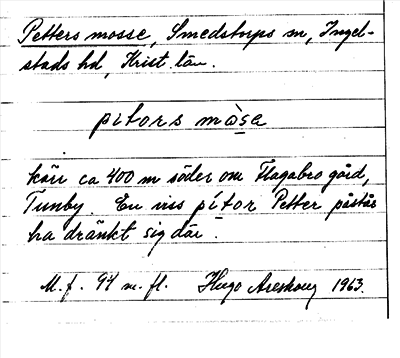 Petters mosse, Smedstorps sn, Ingel-
stads hd, Krist. län.
pítors mòsa
kärr ca 400 m söder om Flagabro gård,
Tunby. En viss pítor Petter påstås
ha dränkt sig där.
M.f. 94 m. fl. Hugo Areskoug 1963.